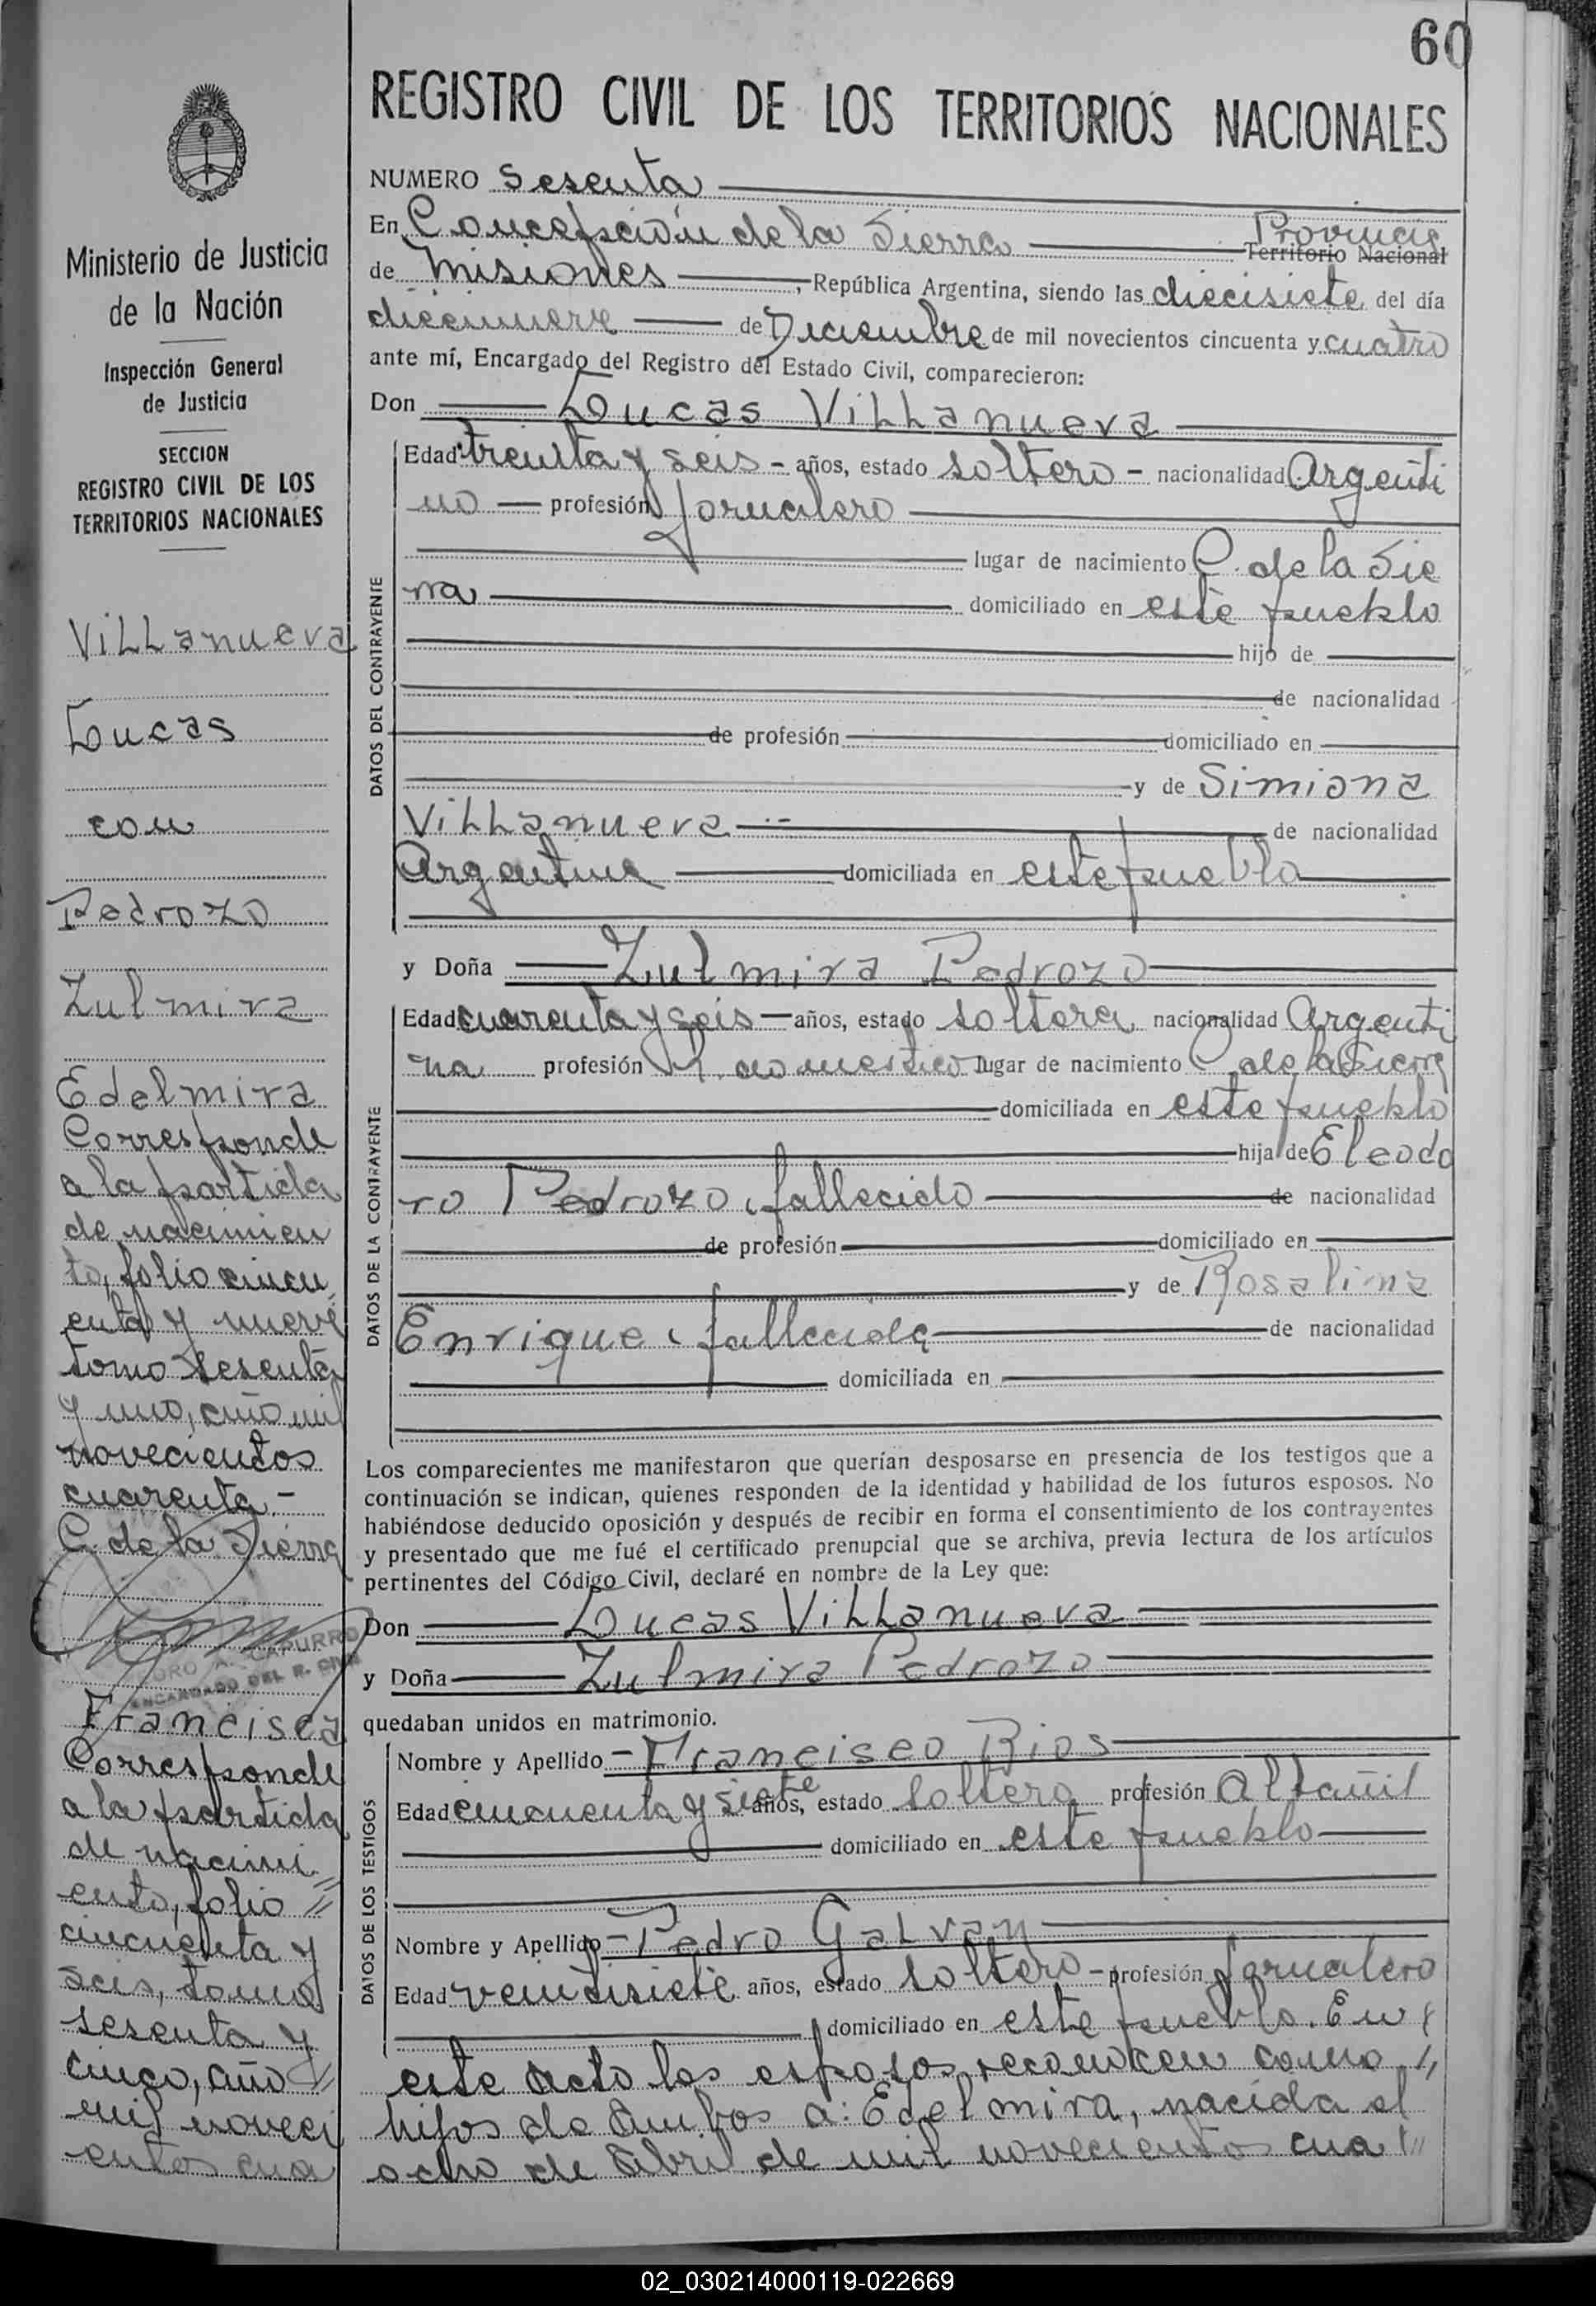 60
REGISTRO CIVIL DE LOS TERRITORIOS NACIONALES
NUMERO Sesenta
En Concepción de la Sierra Provincia
Territorio Nacional
de Misiones, República Argentina, siendo las diecisiete del día
diecinueve de Diciembre de mil novecientos cincuenta y cuatro
ante mí, Encargado del Registro del Estado Civil, comparecieron:
Don Lucas Villanueva
DATOS DEL CONTRAYENTE
Edad treinta y seis - años, estado soltero - nacionalidad Argenti
no profesión Jornalero
lugar de nacimiento C. de la Sie
rra domiciliado en este pueblo
hijo de
de nacionalidad
de profesión domiciliado en
y de Simiona
Villanueva de nacionalidad
Argentina domiciliada en este pueblo
y Doña Zulmira Pedrozo
DATOS DE LA CONTRAYENTE
Edad cuarenta y seis años, estado soltera nacionalidad Argenti
na profesión Q. domestico lugar de nacimiento C. de la Sierra
domiciliada en este pueblo
hija de Eleodo
ro Pedrozo, fallecido de nacionalidad
de profesión domiciliado en
y de Rosalina
Enrique, fallecida de nacionalidad
domiciliada en
Los comparecientes me manifestaron que querían desposarse en presencia de los testigos que a
continuación se indican, quienes responden de la identidad y habilidad de los futuros esposos. No
habiéndose deducido oposición y después de recibir en forma el consentimiento de los contrayentes
y presentado que me fué el certificado prenupcial que se archiva, previa lectura de los artículos
pertinentes del Código Civil, declaré en nombre de la Ley que:
Don Lucas Villanueva
y Doña Zulmira Pedrozo
quedaban unidos en matrimonio.
DATOS DE LOS TESTIGOS
Nombre y Apellido - Francisco Rios
Edad cincuenta y siete años, estado soltero profesión Albañil
domiciliado en este pueblo
Nombre y Apellido - Pedro Galvan
Edad veintisiete años, estado soltero - profesión jornalero
domiciliado en este pueblo. En
este acto los esposos reconocen como
hijos de ambos a: Edelmira, nacida el
ocho de Abril de mil novecientos cua
Ministerio de Justicia
de la Nación
Inspección General
de Justicia
SECCION
REGISTRO CIVIL DE LOS
TERRITORIOS NACIONALES
Villanueva
Lucas
con
Pedrozo
Zulmira
Edelmira
Corresponde
a la partida
de nacimien
to, folio cincu
enta y nueve
tomo sesenta
y uno, año mil
novecientos
cuarenta.-
C. de la Sierra
CAPURRO
ENCARGADO DEL R. CIVIL
Francisca
Corresponde
a la partida
de nacimi
ento, folio
cincuenta y
seis, tomo
sesenta y
cinco, año
mil noveci
entos cua
02_030214000119-022669